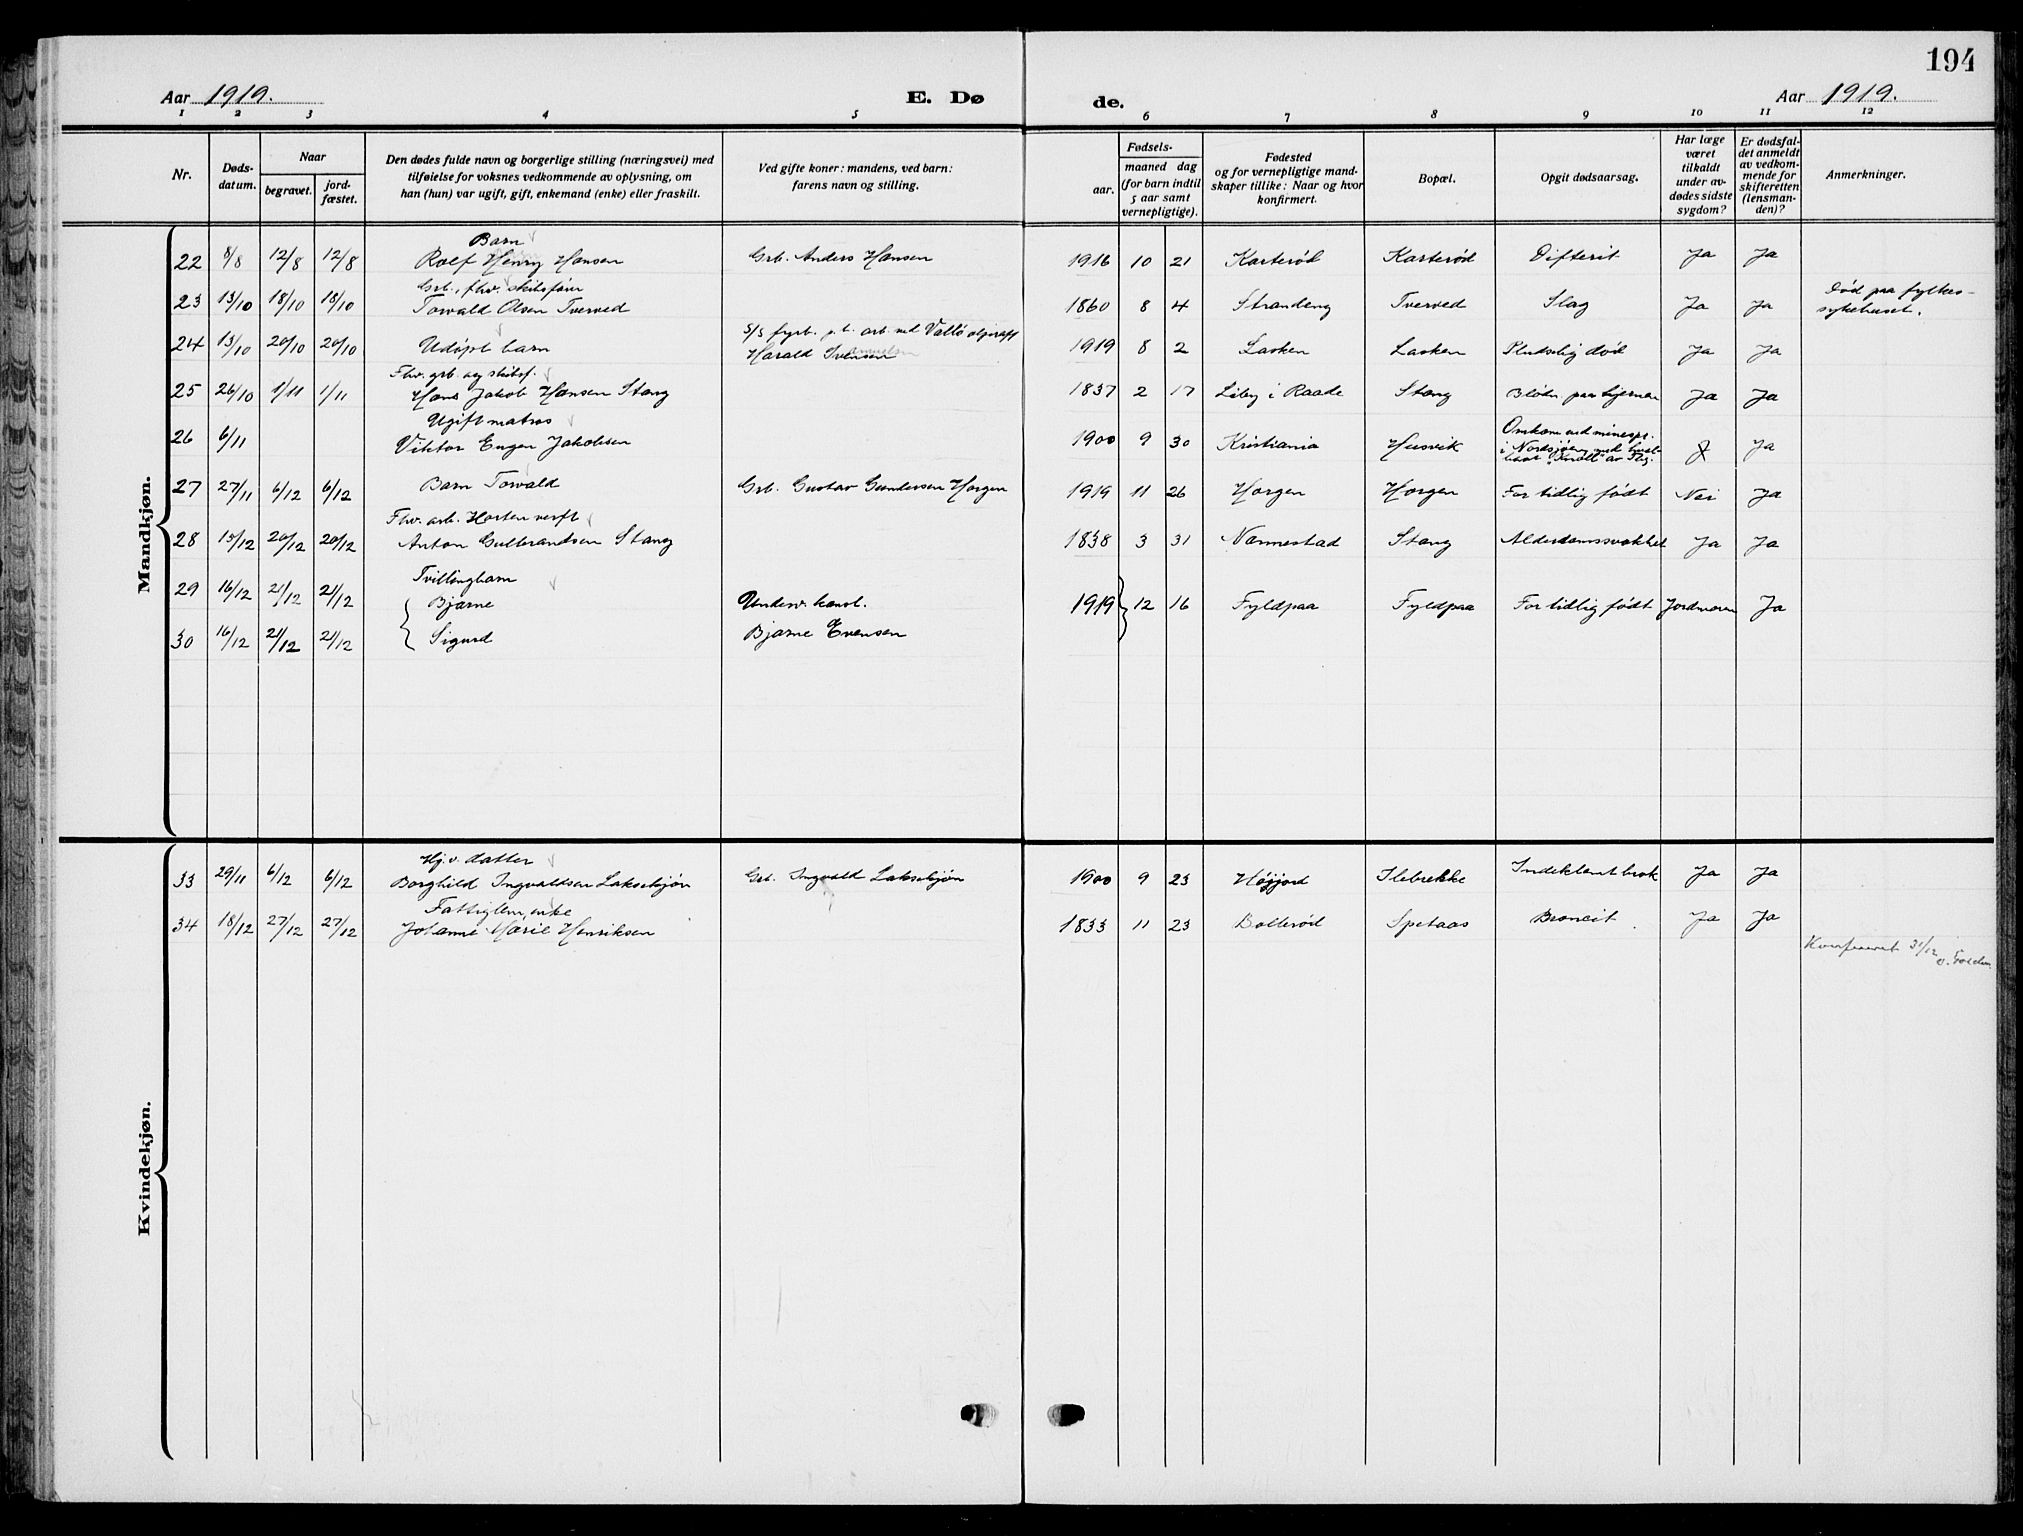 194
Aar 1919. E. Dø de. Aar 1919.
1 2 3 4 5 6 7 8 9 10 11 12
Nr.
Døds-
datum.
Naar
begravet.
jord-
fæstet.
Den dødes fulde navn og borgerlige stilling (næringsvei) med
tilføielse for voksnes vedkommende av oplysning, om
han (hun) var ugift, gift, enkemand (enke) eller fraskilt.
Ved gifte koner: mandens, ved barn:
farens navn og stilling.
Fødsels-
aar.
maaned dag
(for barn indtil
5 aar samt
vernepligtige).
Fødested
og for vernepligtige mand-
skaper tillike: Naar og hvor
konfirmert.
Bopæl.
Opgit dødsaarsag.
Har læge
været
tilkaldt
under av-
dødes sidste
sygdom?
Er dødsfal-
det anmeldt
av vedkom-
mende for
skifteretten
(lensman-
den)?
Anmerkninger.
Mandkjøn.
Barn
22 8/8 12/8 12/8 Rolf Henry Hansen Grb. Anders Hansen 1916 10 21 Karterød Karterød Difterit Ja Ja
Grb., fhv. skibsfører
23 13/10 18/10 18/10 Torvald Olsen Tverved 1860 8 4 Strandeng Tverved Slag Ja Ja Død paa fylkes-
sykehuset.
S/S fyrb. p.t. arb. ved Vallø oljeraff
24 13/10 20/10 20/10 Udøpt barn Harald Svensen 1919 8 2 Lasken Lasken Pludselig død Ja Ja
Fhv. grb. og skibsf.
25 26/10 1/11 1/11 Hans Jakob Hansen Stang 1837 2 17 Liby i Raade Stang Blødn. paa hjernen Ja Ja
Ugift matros
26 6/11 Viktor Eugen Jakobsen 1900 9 30 Kristiania Husvik Omkom ved minespr.
i Nordsjøen med
Ja
27 27/11 6/12 6/12 Barn Torvald Grb. Gustav Gundersen Horgen 1919 11 26 Horgen Horgen For tidlig født Nei Ja
Fhv. arb. Horten verft
28 13/12 20/12 20/12 Anton Gulbrandsen Stang 1838 3 31 Nannestad Stang Alderdomssvakhet Ja Ja
Tvillingbarn
29 16/12 21/12 21/12 Bjarne Underv. kanol. 1919 12 16 Fyldpaa Fyldpaa For tidlig født Jordmoren Ja
30 16/12 21/12 21/12 Sigurd Bjarne Evensen
Kvindekjøn.
Hj.v. datter
33 29/11 6/12 6/12 Borghild Ingvaldsen Laksekjøn Grb. Ingvald Laksekjøn 1900 9 23 Høijord Ilebrekke Indeklemt brok Ja Ja
Fattiglem, enke
34 18/12 27/12 27/12 Johanne Marie Henriksen 1833 11 23 Bollerød Spetaas Broncit. Ja Ja
Konfereret 31/12